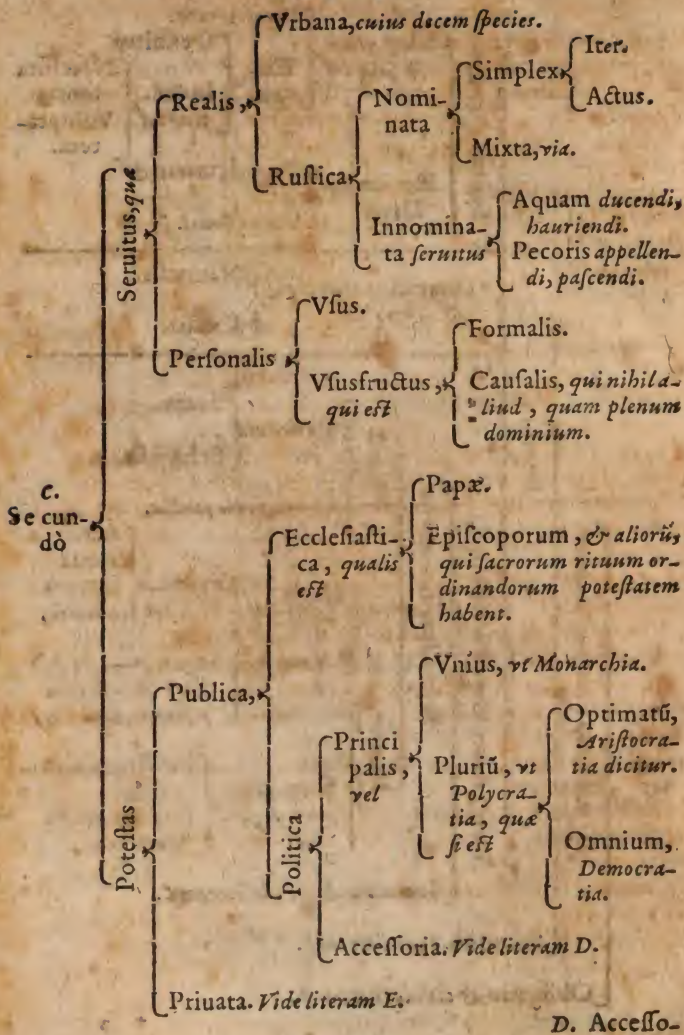 Vrbana, cuius decem ſpecies.
Realis,
Ruſtica
Nomi-
nata
Simplex
Iter.
Actus.
Mixta, via.
Innomina-
ta ſeruitus
Aquam ducendi,
hauriendi.
Pecoris appellen-
di, paſcendi.
Seruitus, quæ
Perſonalis
Vſus.
Vſusfructus,
qui eſt
Formalis.
Cauſalis, qui nihil a-
liud, quam plenum
dominium.
C.
Se cun-
dò
Poteſtas
Publica,
Eccleſiaſti-
ca, qualis
eſt
Papæ.
Epiſcoporum, & aliorũ,
qui ſacrorum rituum or-
dinandorum poteſtatem
habent.
Politica
Princi
palis,
vel
Vnius, vt Monarchia.
Pluriũ, vt
Polycra-
tia, quæ
ſi eſt
Optimatũ,
Ariſtocra-
tia dicitur.
Omnium,
Democra-
tia.
Acceſſoria. Vide literam D.
Priuata. Vide literam E.
D. Acceſſo-